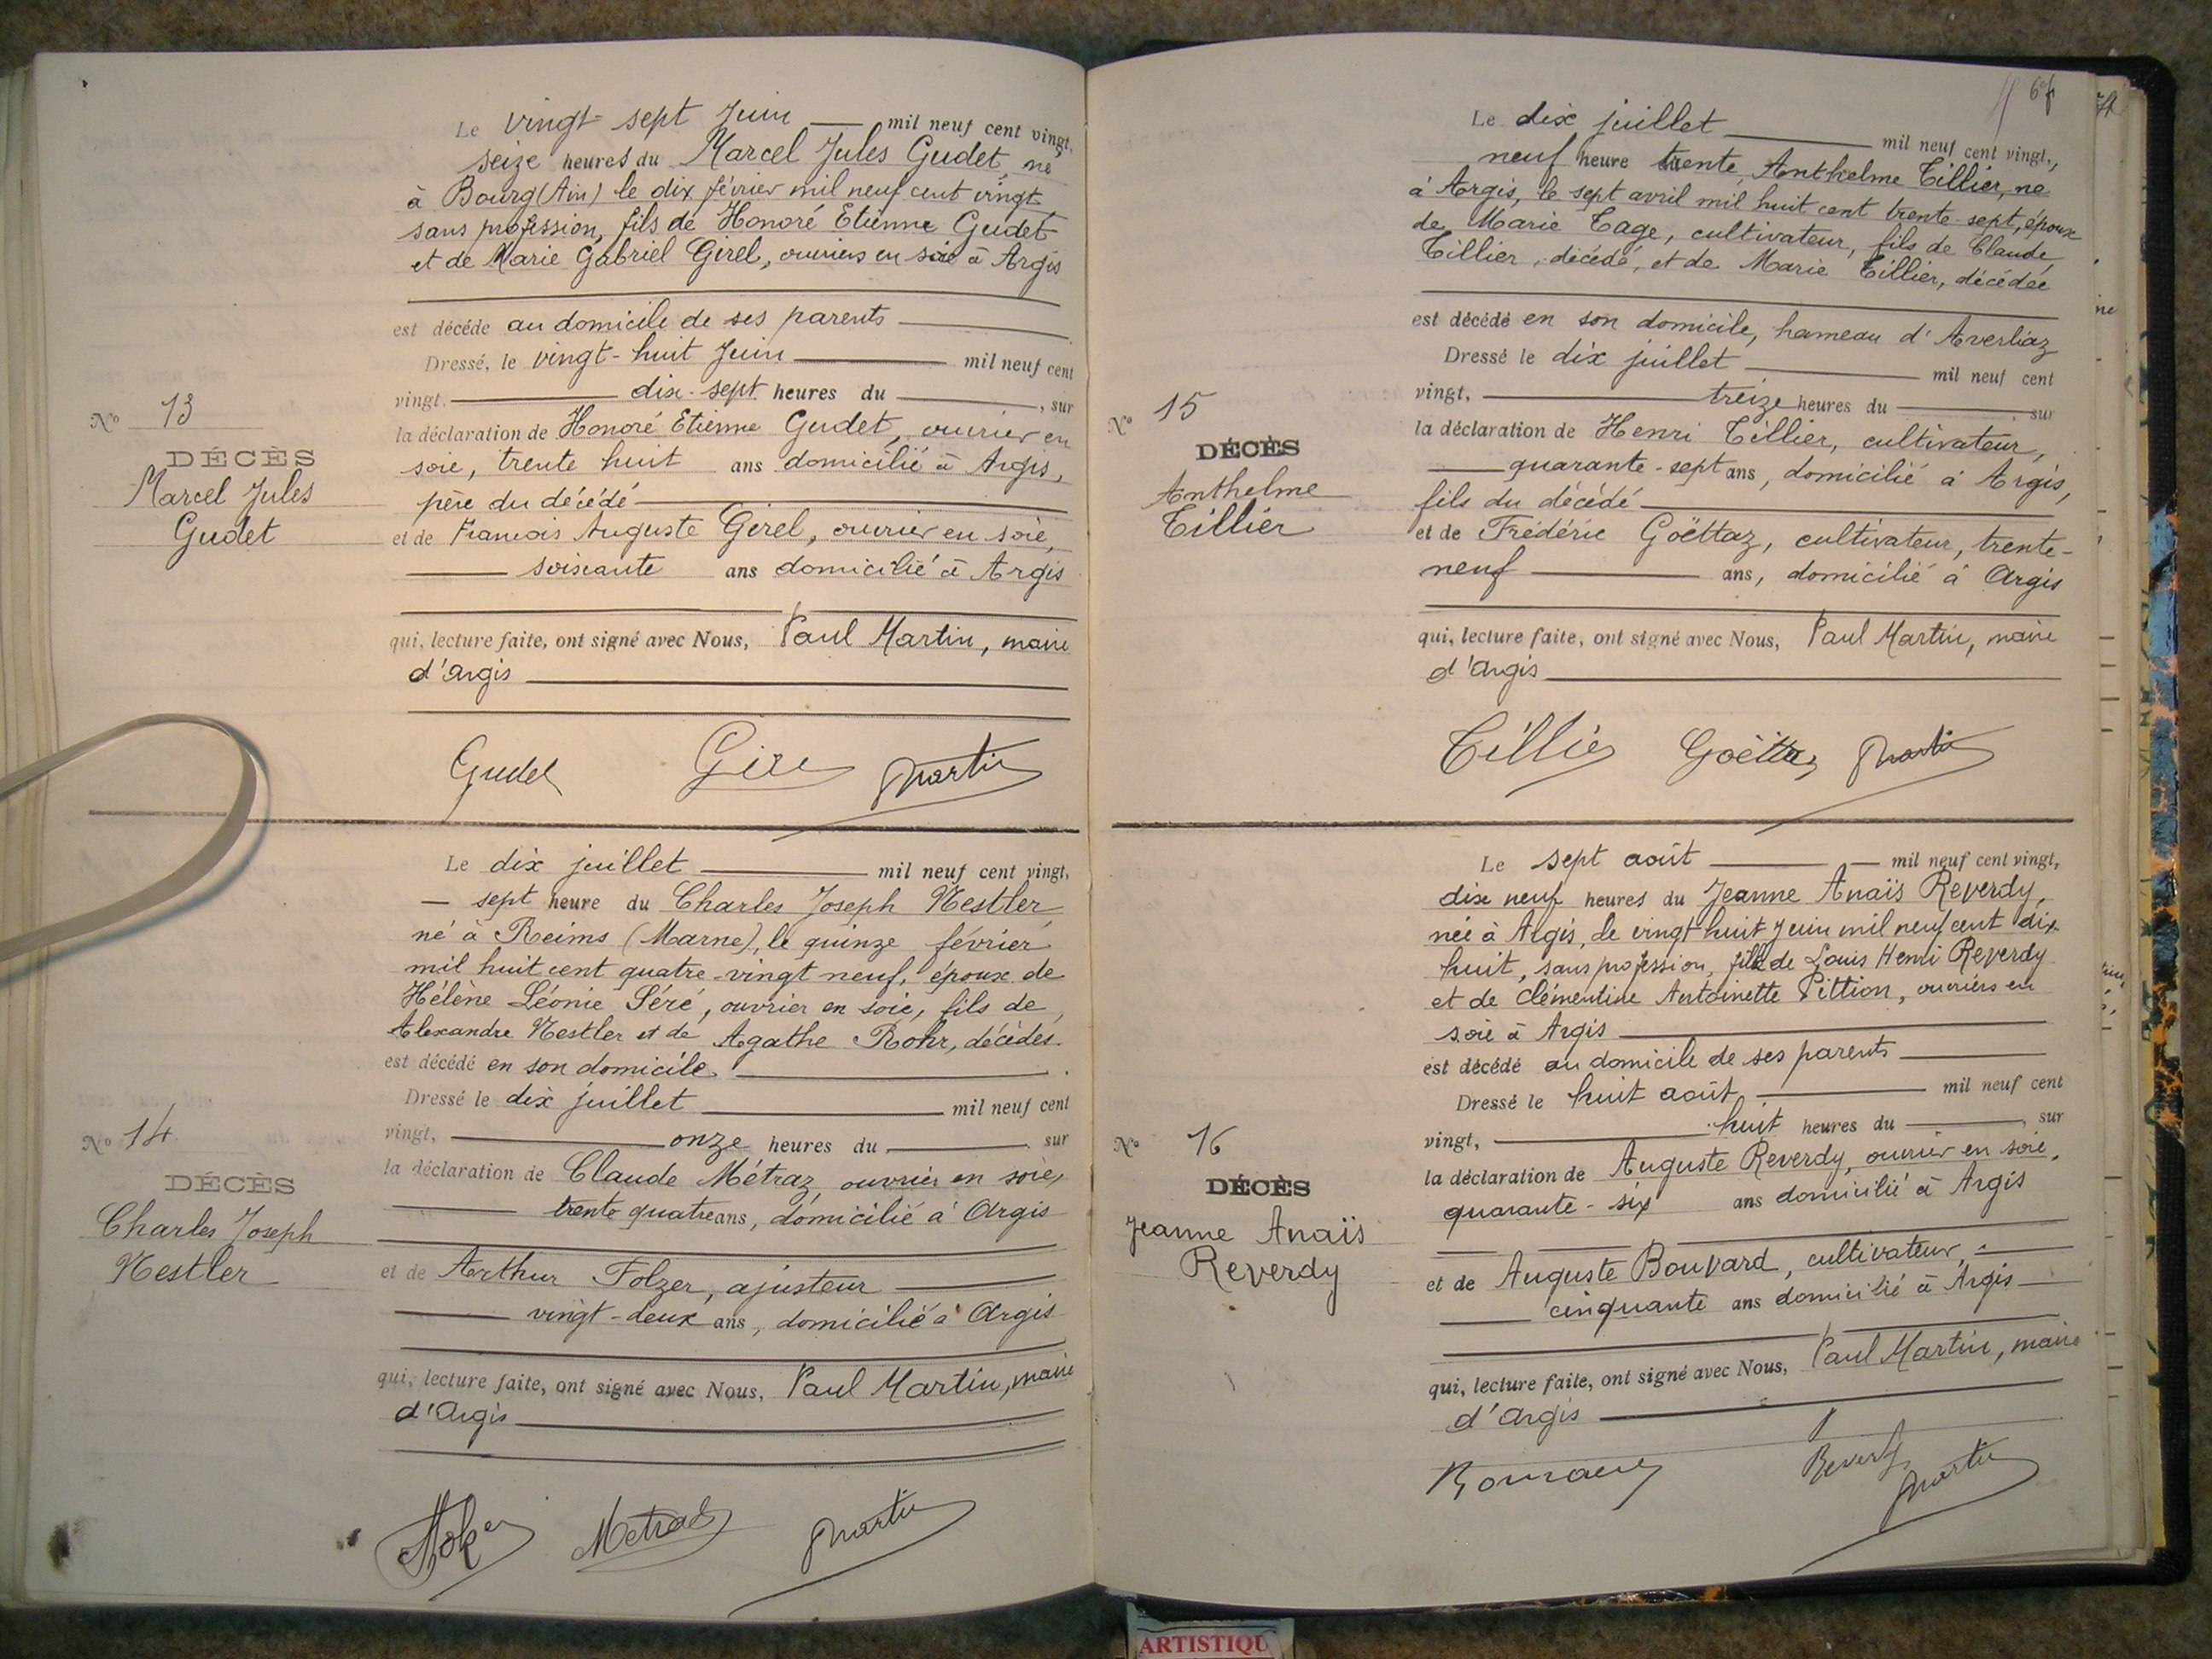 Le vingt-sept Juin mil neuf cent vingt,
seize heures du Marcel Jules Gudet, né
à Bourg (Ain) le dix février mil neuf cent vingt
sans profession, fils de Honoré Etienne Gudet
et de Marie Gabriel Girel, ouvriers en soie à Argis
est décédé au domicile de ses parents
Dressé, le vingt-huit Juin mil neuf cent
vingt, dix-sept heures du , sur
la déclaration de Honoré Etienne Gudet, ouvrier en
soie, trente huit ans domicilié à Argis,
père du décédé
et de Francois Auguste Girel, ouvrier en soie,
soixante ans domicilié à Argis
qui, lecture faite, ont signé avec Nous, Paul Martin, maire
d'Argis
Nº 13
DÉCÈS
Marcel Jules
Gudet
Gudet Girel Martin
Le dix juillet mil neuf cent vingt,
sept heure du Charles Joseph Nestler
né à Reims (Marne), le quinze février
mil huit cent quatre-vingt neuf, époux de
Hélène Léonie Séré, ouvrier en soie, fils de
Alexandre Nestler et de Agathe Rohr, décédés.
est décédé en son domicile.
Dressé le dix juillet mil neuf cent
vingt, onze heures du , sur
la déclaration de Claude Métraz, ouvrier en soie,
trente quatre ans, domicilié à Argis
et de Arthur Folzer, ajusteur
vingt-deux ans, domicilié à Argis
qui, lecture faite, ont signé avec Nous, Paul Martin, maire
d'Argis
Nº 14
DÉCÈS
Charles Joseph
Nestler
Metraz Martin
Le dix juillet mil neuf cent vingt,
neuf heure trente, Anthelme Tillier, né
à Argis, le sept avril mil huit cent trente-sept, époux
de Marie Tage, cultivateur, fils de Claude
Tillier, décédé, et de Marie Tillier, décédée
est décédé en son domicile, hameau d'Averliaz
Dressé le dix juillet mil neuf cent
vingt, treize heures du sur
la déclaration de Henri Tillier, cultivateur,
quarante-sept ans, domicilié à Argis,
fils du décédé
et de Frédéric Goëttaz, cultivateur, trente-
neuf ans, domicilié à Argis
qui, lecture faite, ont signé avec Nous, Paul Martin, maire
d'Argis
Nº 15
DÉCÈS
Anthelme
Tillier
Tillier Goëttaz Martin
Le sept août mil neuf cent vingt,
dix neuf heures du Jeanne Anaïs Reverdy,
née à Argis, le vingt-huit Juin mil neuf cent dix-
huit, sans profession, fille de Louis Henri Reverdy
et de Clémentine Antoinette Pittion, ouvriers en
soie à Argis
est décédé au domicile de ses parents
Dressé le huit août, mil neuf cent
vingt, huit heures du , sur
la déclaration de Auguste Reverdy, ouvrier en soie,
quarante-six ans domicilié à Argis
et de Auguste Bouvard, cultivateur,
cinquante ans domicilié à Argis
qui, lecture faite, ont signé avec Nous, Paul Martin, maire
d'Argis
Nº 16
DÉCÈS
Jeanne Anaïs
Reverdy
Bouvard Reverdy Martin
ARTISTIQU